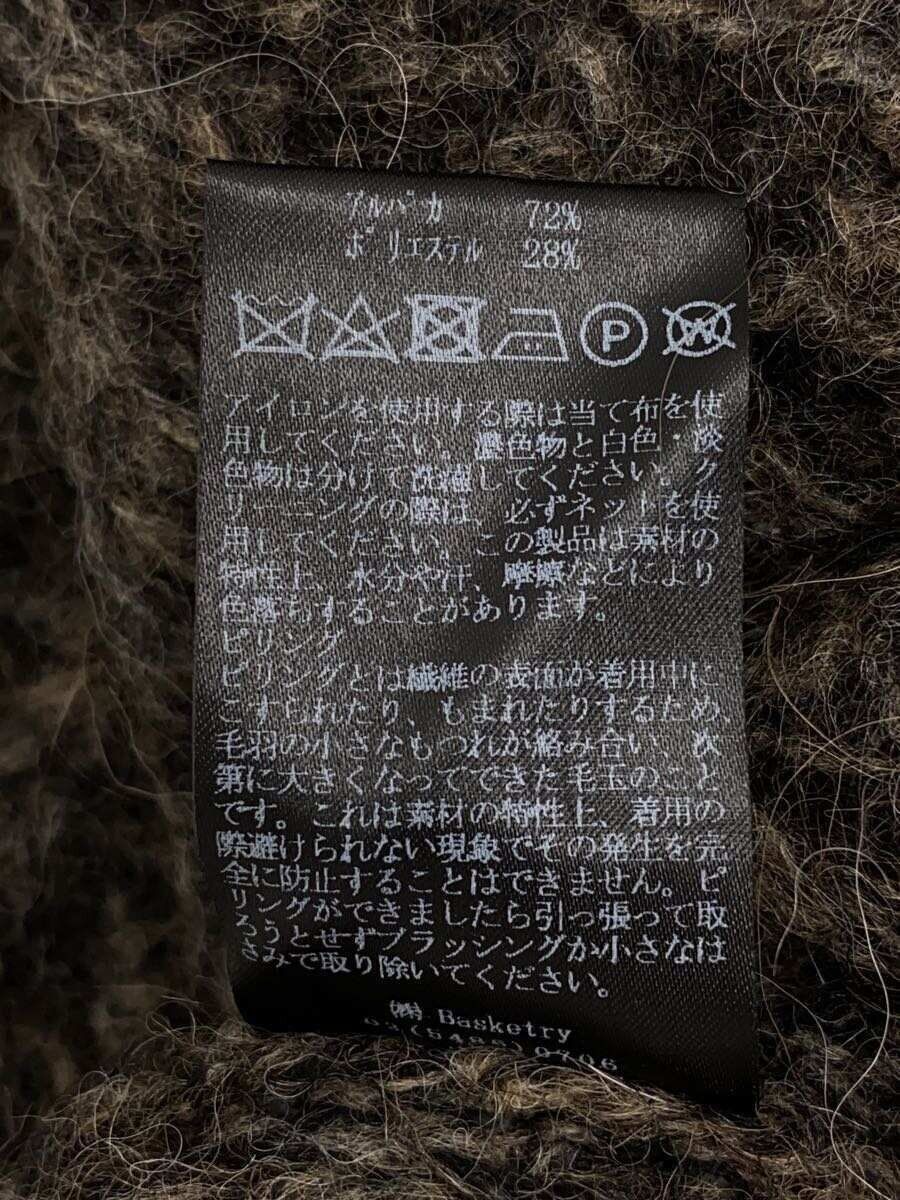 アルパカ 72%
ポリエステル 28%
P
W
アイロンを使用する際は当て布を使
用してください。濃色物と白色・淡
色物は分けて洗濯してください。ク
リーニングの際は、必ずネットを使
用してください。この製品は素材の
特性上、水分や汗、摩擦などにより
色落ちすることがあります。
ピリング
ピリングとは繊維の表面が着用中に
こすられたり、もまれたりするため、
毛羽の小さなもつれが絡み合い、次
第に大きくなってできた毛玉のこと
です。これは素材の特性上、着用の
際避けられない現象でその発生を完
全に防止することはできません。ピ
リングができましたら引っ張って取
ろうとせずブラッシングか小さなは
さみで取り除いてください。
㈱ Basketry